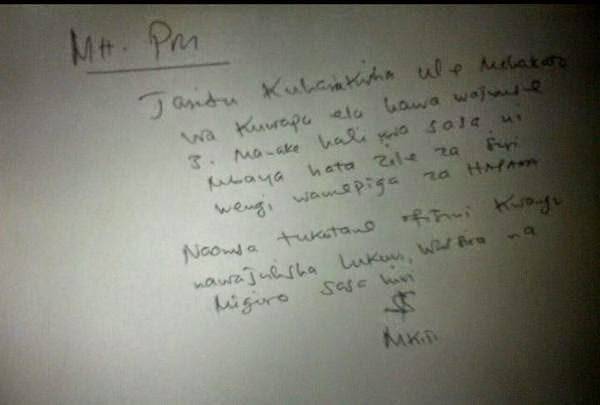 MH. PM
Jaridu Kuharakisha ule Mchakato
wa Kuwapa ela hawa wajumbe
3. Maake hali kwa sasa ni
Mbaya hata zile za siri
wengi wamepiga za HAPANA
Naomba tukutane ofisini Kwangu
nawajulisha Lukuvi, Wasira na
Migiro sasa hivi